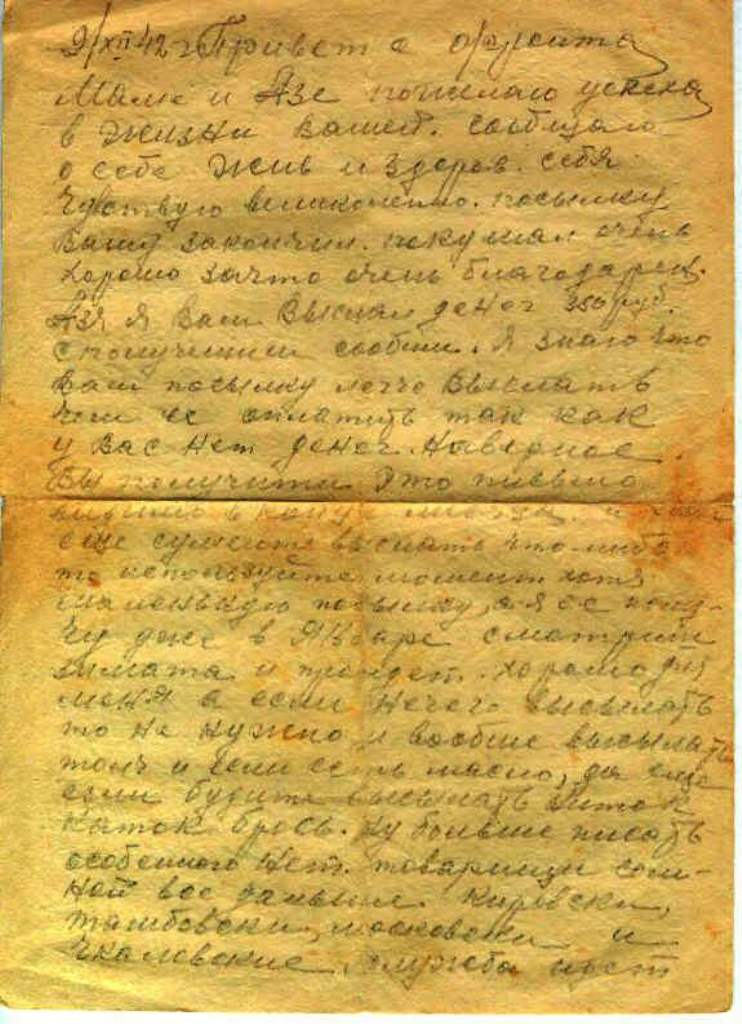 9/XII 42 г Привет с фронта
Маме и Азе пожелаю успеха
в жизни вашей. Сообщаю
о себе жив и здоров. себя
Чувствую великолепно. посылку
вашу закончил. покушал очень
хорошо зачто очень благодарен.
Азя я вам выслал денег 350 руб.
с получением сообши. Я знаю что
вам посылку легче выслать
чем ее оплатить так как
у вас нет денег. Наверное
Вы получити это письмо
в конце
еще сумеете выслать что либо
то используйте момент хотя
маленькую посылку, а я ее полу-
чу уже в Январе смотриш
зимата и пройдет. хорошо для
меня а если нечего высылать
то не нужно и вообше высылать
если есть масло, да еще
если будите высылать
каток брось. Ну больше писать
особенного нет. товарищи со м-
ной все Кировски,
тамбовски, московски и
Чкаловские, служба идет